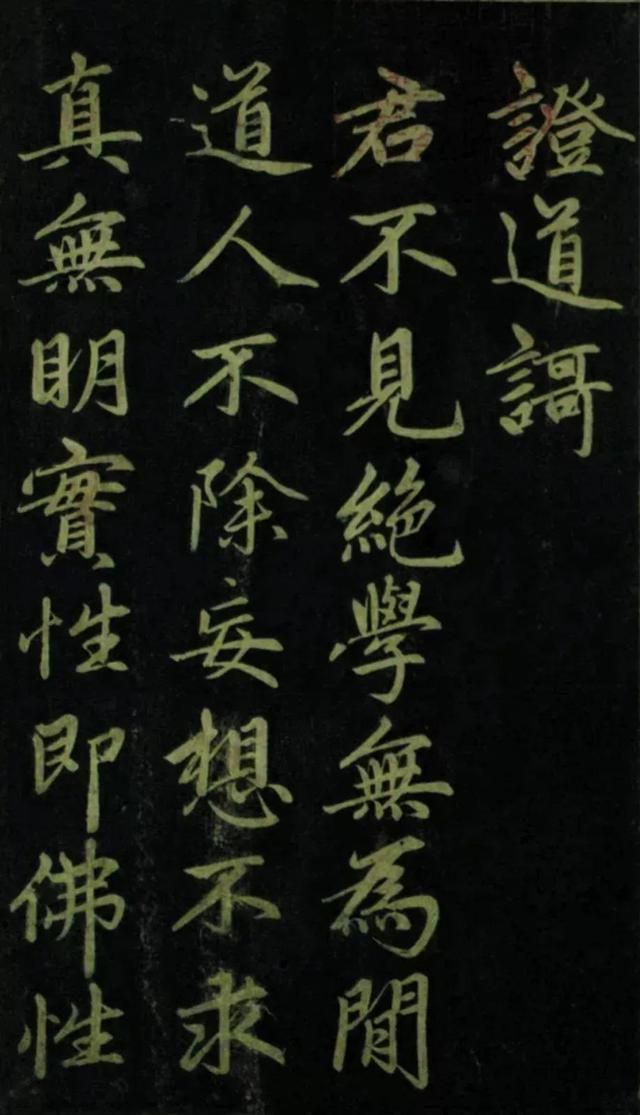 證道謌
君不見絕學無為閒
道人不除妄想不求
真無明實性即佛性